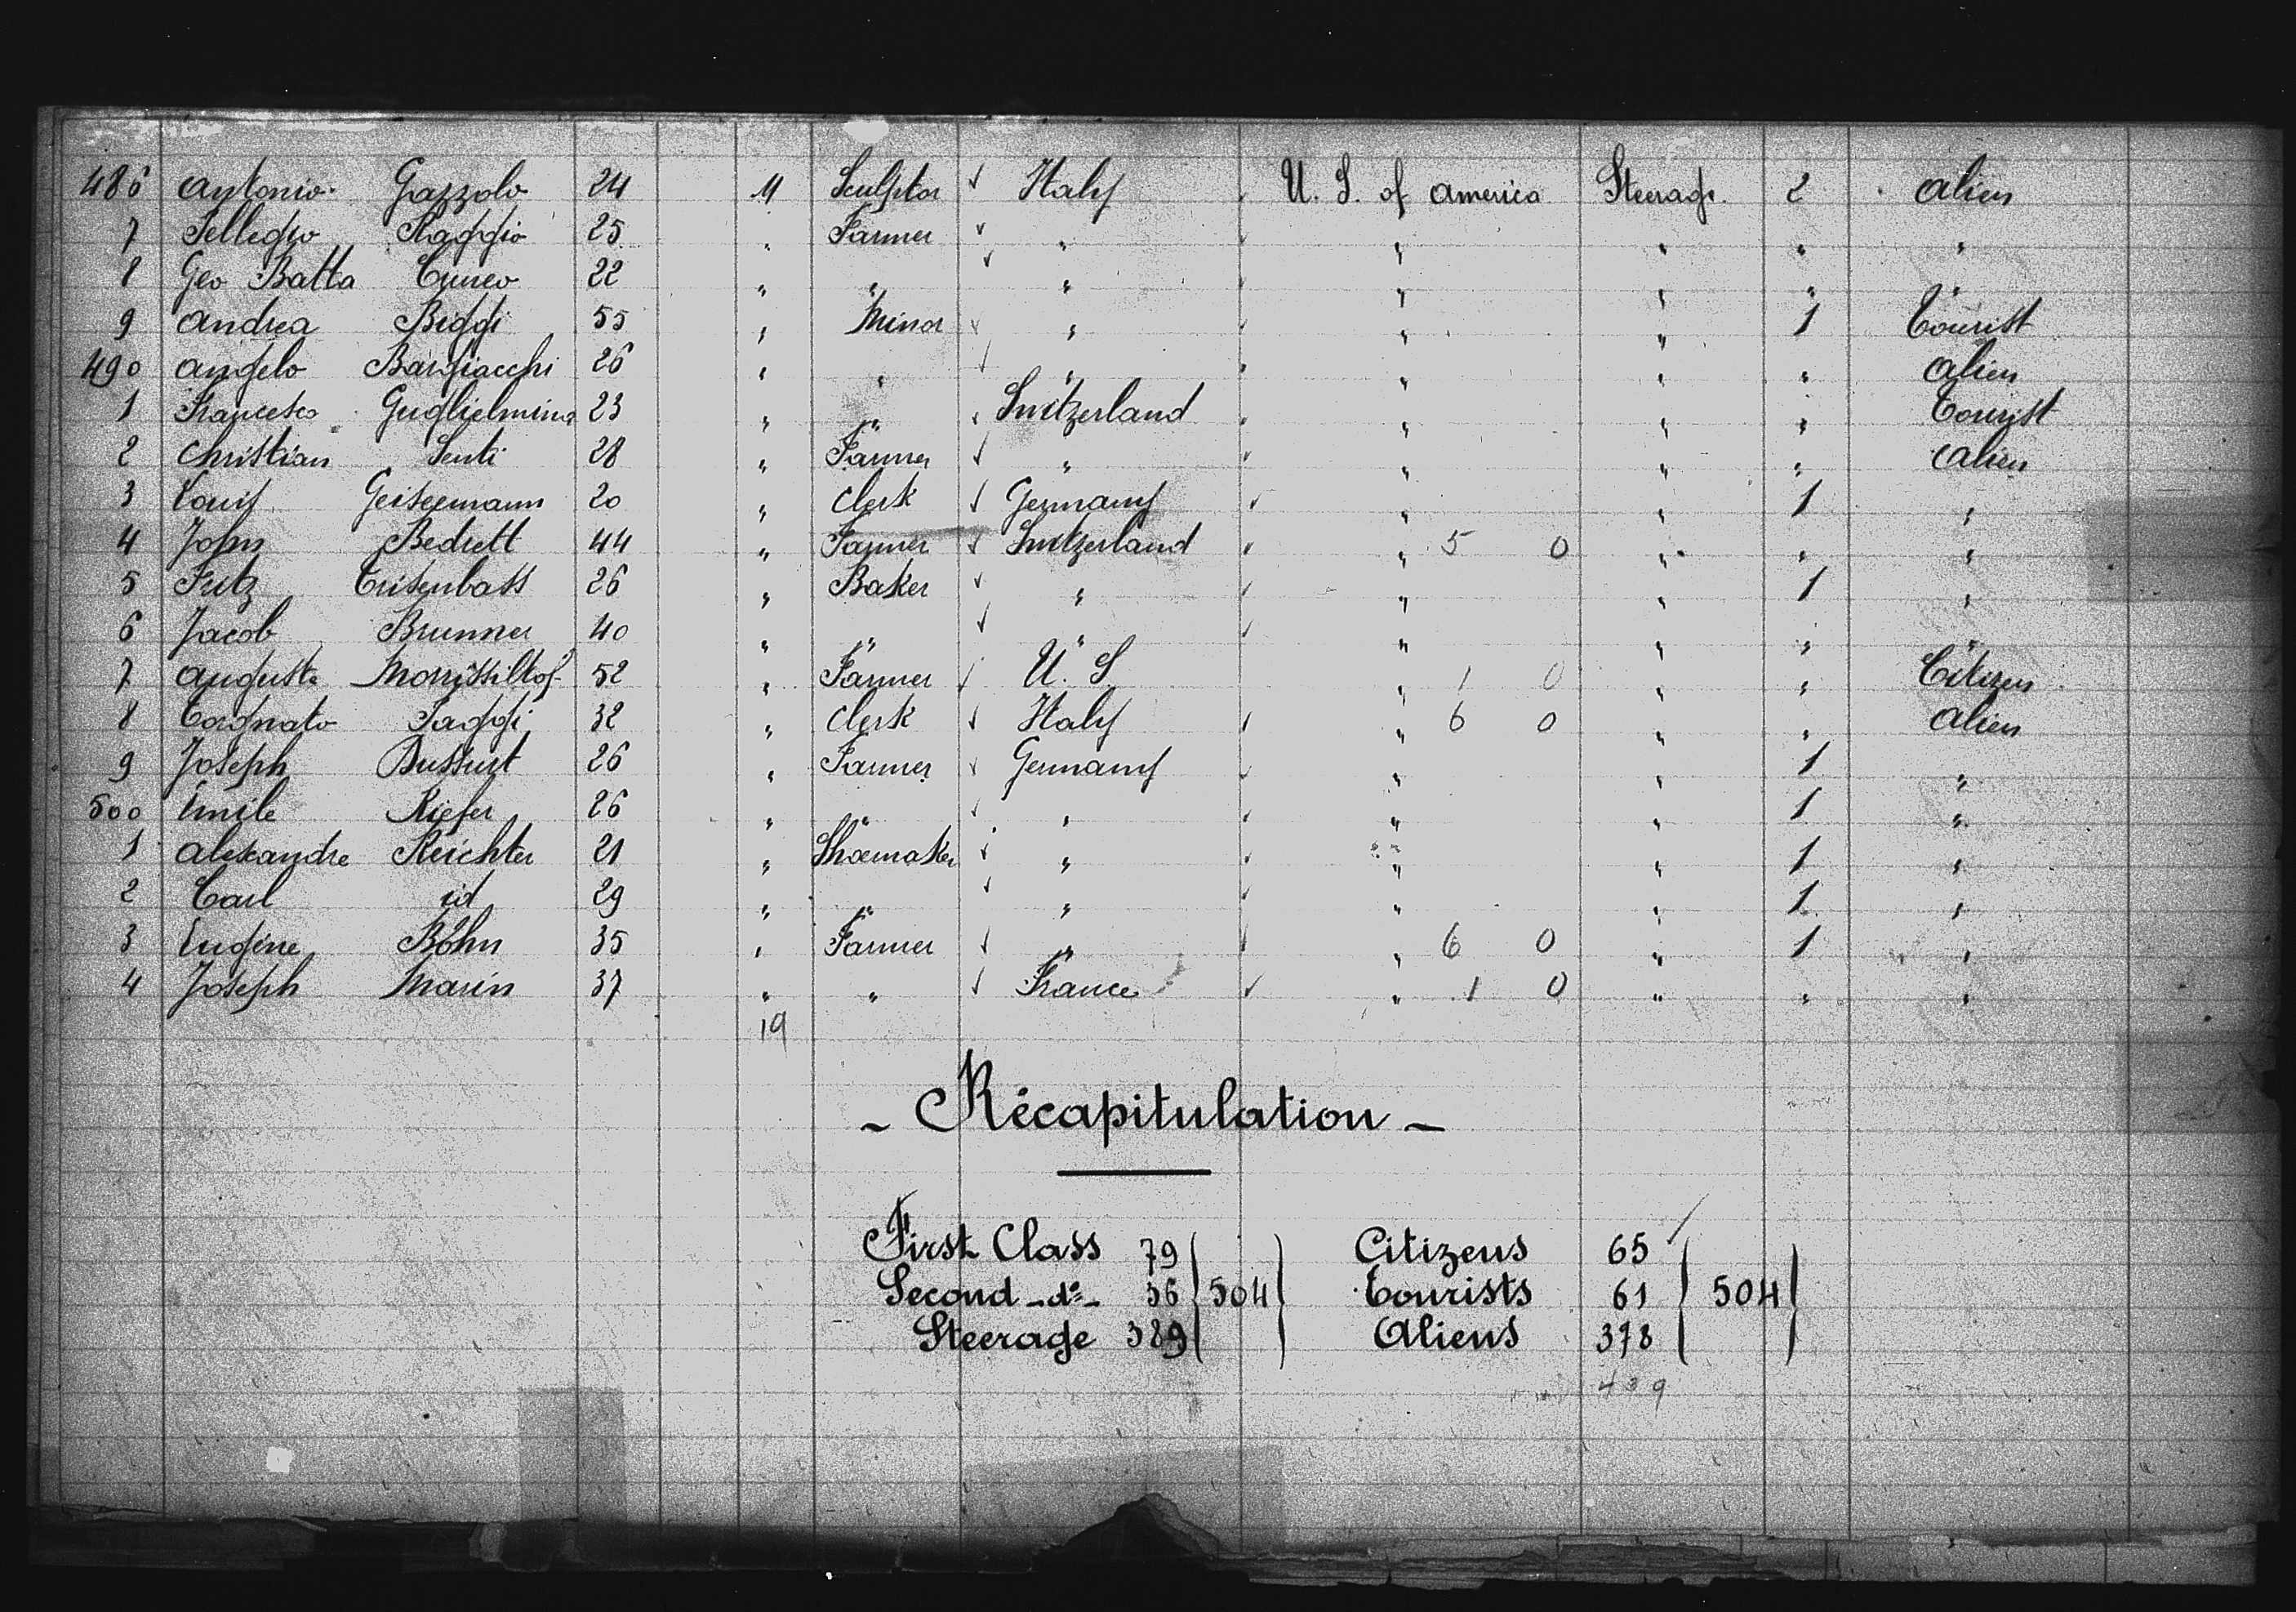 486 Antonio Gazzolo 24 M Sculptor ✓ Italy ✓ U. S. of America Steerage 2 Alien
7 Pellegro Raggio 25 " Farmer ✓ " ✓ " " " "
8 Geo Batta Cuneo 22 " " ✓ " " " " "
9 Andrea Biggi 55 " Minor ✓ " ✓ " " 1 Tourist
490 Angelo Bargiacchi 26 " " ✓ " " " " Alien
1 Francesco Guglielmina 23 " " Switzerland " " " Tourist
2 Christian Senti 28 " Farmer ✓ " ✓ " " " Alien
3 Louis Geisermann 20 " Clerk ✓ Germany ✓ " " 1 "
4 John Bedrett 44 " Farmer ✓ Switzerland ✓ " 5 0 " " "
5 Fritz 26 " Baker ✓ " ✓ " " 1 "
6 Jacob Brunner 40 " " ✓ " ✓ " " " "
7 Auguste 52 " Farmer ✓ U. S " 1 0 " " Citizen
8 Torquato Saggi 32 " Clerk ✓ Italy ✓ " 6 0 " " Alien
9 Joseph 26 " Farmer ✓ Germany ✓ " " 1 "
500 Emile Kiefer 26 " " ✓ " ✓ " " 1 "
1 Alexandre Reichter 21 " Shoemaker ✓ " ✓ " " 1 "
2 Carl id 29 " " ✓ " ✓ " " 1 "
3 Eugène Böhn 35 " Farmer ✓ " ✓ " 6 0 " 1 "
4 Joseph Marin 37 " " ✓ France ✓ " 1 0 " " "
19
- Récapitulation -
First Class 79 Citizens 65 ✓
Second -do- 36 504 Tourists 61 504
Steerage 389 Aliens 378
439